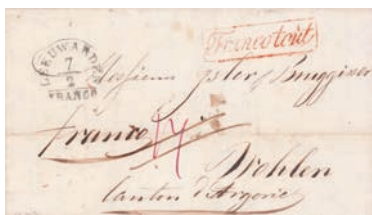 LEEUWARDEN
7/2
FRANCO
Franco tout
Messieurs Isler & Bruggisser
franco
14
Wohlen
Canton d'Argovie